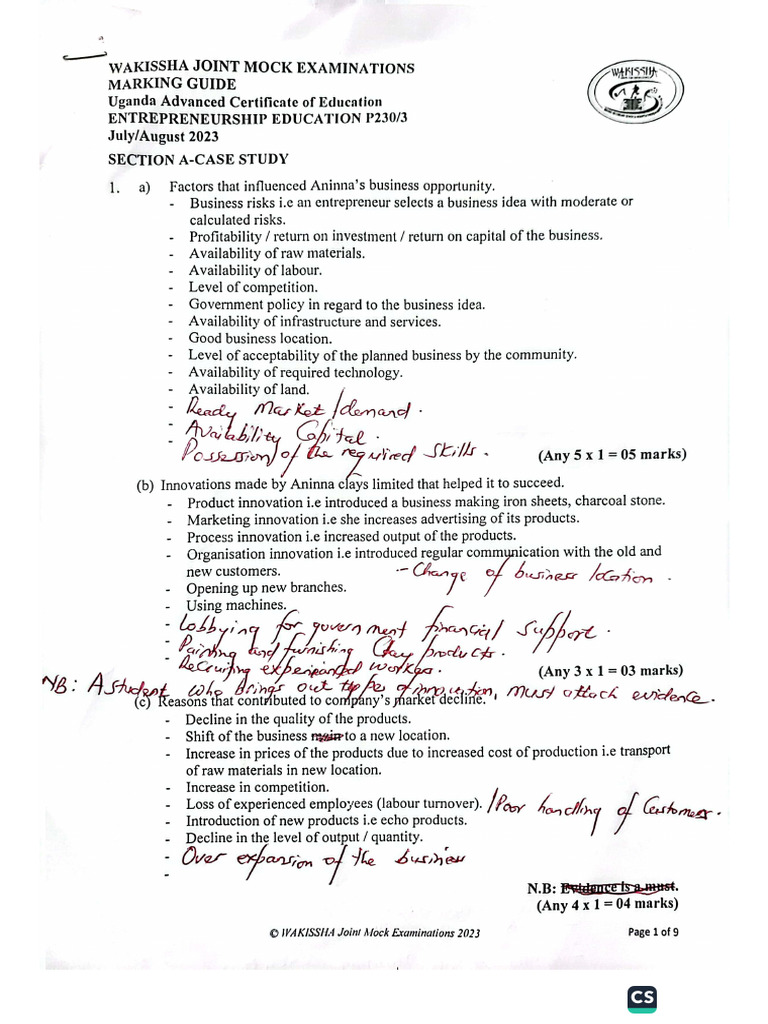 WAKISSHA JOINT MOCK EXAMINATIONS
MARKING GUIDE
Uganda Advanced Certificate of Education
ENTREPRENEURSHIP EDUCATION P230/3
July/August 2023
WAKISSHA
SECTION A-CASE STUDY
1. a) Factors that influenced Aninna's business opportunity.
- Business risks i.e an entrepreneur selects a business idea with moderate or
calculated risks.
- Profitability / return on investment / return on capital of the business.
- Availability of raw materials.
- Availability of labour.
- Level of competition.
- Government policy in regard to the business idea.
- Availability of infrastructure and services.
- Good business location.
- Level of acceptability of the planned business by the community.
- Availability of required technology.
- Availability of land.
- Ready Market /demand.
- Availability Capital.
- Possession of the required skills.
(Any 5 x 1 = 05 marks)
(b) Innovations made by Aninna clays limited that helped it to succeed.
- Product innovation i.e introduced a business making iron sheets, charcoal stone.
- Marketing innovation i.e she increases advertising of its products.
- Process innovation i.e increased output of the products.
- Organisation innovation i.e introduced regular communication with the old and
new customers. - Change of business location.
- Opening up new branches.
- Using machines.
- Lobbying for government financial support.
- Painting and furnishing Clay products.
- Recruiting experienced workers.
(Any 3 x 1 = 03 marks)
NB: A student who brings out types of innovation, must attach evidence.
(c) Reasons that contributed to company's market decline.
- Decline in the quality of the products.
- Shift of the business to a new location.
- Increase in prices of the products due to increased cost of production i.e transport
of raw materials in new location.
- Increase in competition.
- Loss of experienced employees (labour turnover). /Poor handling of Customers.
- Introduction of new products i.e echo products.
- Decline in the level of output / quantity.
- Over expansion of the business
-
N.B: Evidence is a must.
(Any 4 x 1 = 04 marks)
© WAKISSHA Joint Mock Examinations 2023
Page 1 of 9
CS